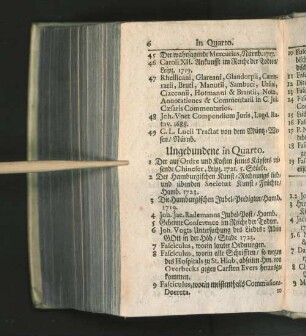 6 In Quarto.
45 Der wahrsagende Mercurius, Nürnb. 1715.
46 Caroli XII. Ankunfft im Reiche der Todten,
Leipz. 1719.
47 Rhellicani, Glareani, Glandorpii, Came-
rarii, Bruti, Manutii, Sambuci, Ursini,
Ciacconii, Hotmanni & Brantii, Nota,
Annotationes & Commentarii in C. Jul.
Cæsaris Commentarios.
48 Joh. Voet Compendium Juris, Lugd. Ba-
tav. 1688.
49 G. L. Lucii Tractat von dem Müntz-We-
sen / Nürnb.
Ungebundene in Quarto.
1 Der auf Orden und Kosten seines Käysers rei-
sende Chineser, Leipz. 1721. 5. Stücke.
2 Der Hamburgischen Kunst-Rechnungs lieb-
und übenden Societet Kunst-Früchte/
Hamb. 1723.
3 Die Hamburgischen Jubel-Predigten/Hamb.
1719.
4 Joh. Jac. Rademanns Jubel-Post/ Hamb.
5 Geheime Conference im Reiche der Todten.
6 Joh. Vogts Untersuchung des Liedes: Allein
GOtt in der Höh/ Stade 1723.
7 Fasciculus, worin lauter Ordnungen.
8 Fasciculus, worin alle Schrifften / so wegen
des Hospitals zu St. Hiob,
Overbecks gegen Carsten Evers herausge-
kommen.
9 Fasciculus, worin meistentheils Commissions-
Decreta.